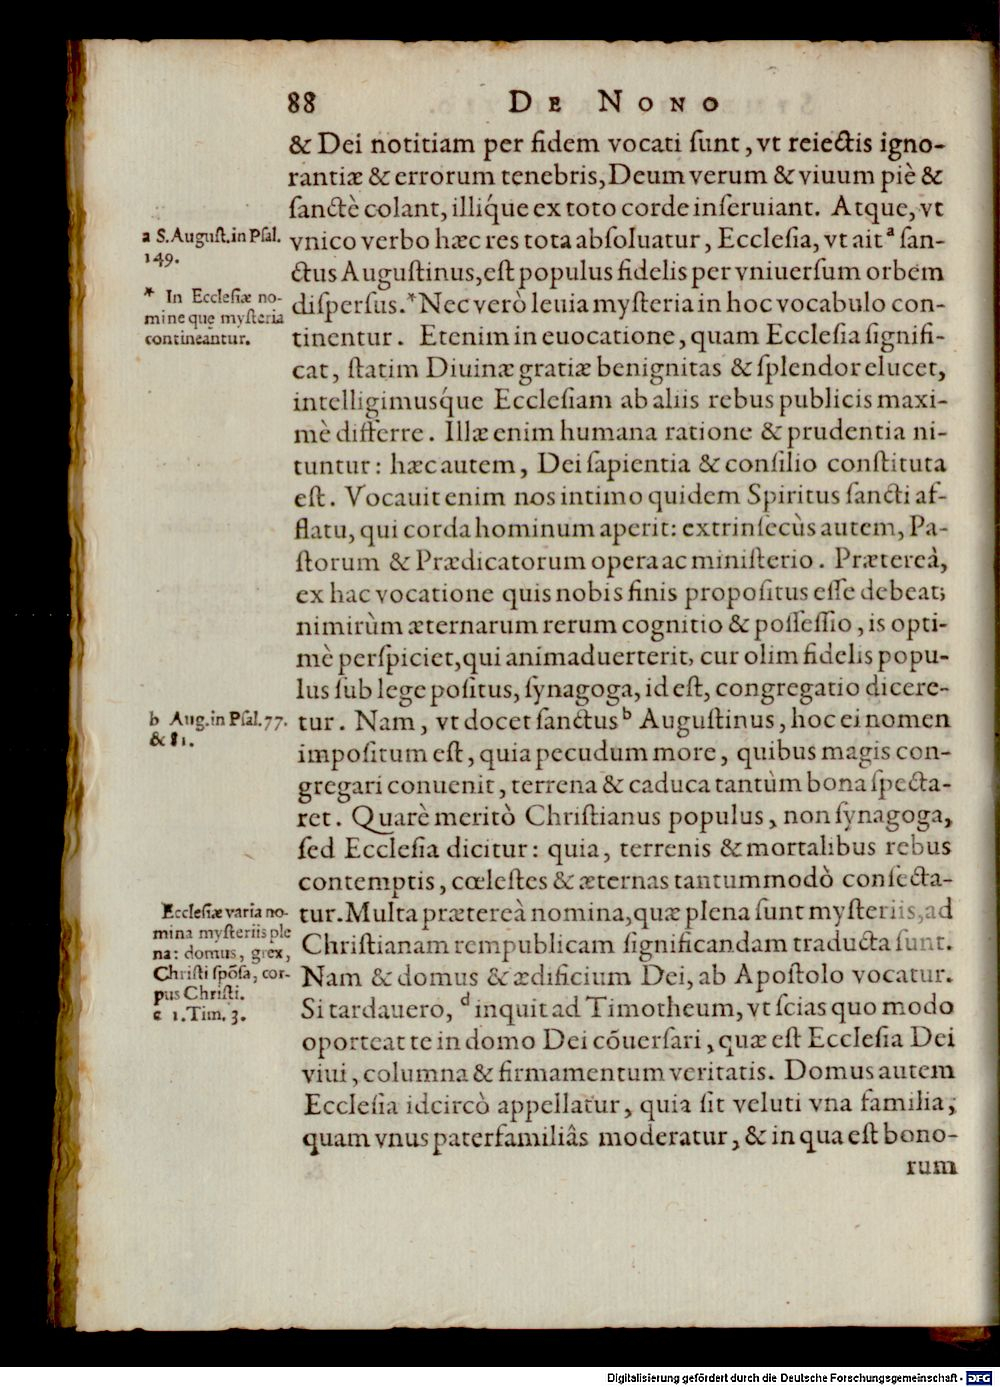 88 DE NONO
& Dei notitiam per fidem vocati ſunt, vt reiectis igno-
rantiæ & errorum tenebris, Deum verum & viuum piè &
ſanctè colant, illíque ex toto corde inſeruiant. Atque, vt
a S. Auguſt. in Pſal.
149.
vnico verbo hæc res tota abſoluatur, Eccleſia, vt ait a ſan-
ctus Auguſtinus, eſt populus fidelis per vniuerſum orbem
* In Eccleſiæ no-
mine quę myſteria
contineantur.
diſperſus. * Nec verò leuia myſteria in hoc vocabulo con-
tinentur. Etenim in euocatione, quam Eccleſia ſignifi-
cat, ſtatim Diuinæ gratiæ benignitas & ſplendor elucet,
intelligimusq́ue Eccleſiam ab aliis rebus publicis maxi-
mè differre. Illæ enim humana ratione & prudentia ni-
tuntur: hæc autem, Dei ſapientia & conſilio conſtituta
eſt. Vocauit enim nos intimo quidem Spiritus ſancti af-
flatu, qui corda hominum aperit: extrinſecùs autem, Pa-
ſtorum & Prædicatorum opera ac miniſterio. Prætereà,
ex hac vocatione quis nobis finis propoſitus eſſe debeat;
nimirùm æternarum rerum cognitio & poſſeſſio, is opti-
mè perſpiciet, qui animaduerterit, cur olim fidelis popu-
lus ſub lege poſitus, ſynagoga, id eſt, congregatio dicere-
b Aug. in Pſal. 77.
& 81.
tur. Nam, vt docet ſanctus b Auguſtinus, hoc ei nomen
impoſitum eſt, quia pecudum more, quibus magis con-
gregari conuenit, terrena & caduca tantùm bona ſpecta-
ret. Quarè meritò Chriſtianus populus, non ſynagoga,
ſed Eccleſia dicitur: quia, terrenis & mortalibus rebus
contemptis, cœleſtes & æternas tantummodò conſecta-
Eccleſiæ varia no-
mina myſteriis ple
na: domus, grex,
Chriſti ſpõſa, cor-
pus Chriſti.
c 1. Tim. 3.
tur. Multa prætereà nomina, quæ plena ſunt myſteriis, ad
Chriſtianam rempublicam ſignificandam traducta ſunt.
Nam & domus & ædificium Dei, ab Apoſtolo vocatur.
Si tardauero, d inquit ad Timotheum, vt ſcias quo modo
oporteat te in domo Dei cõuerſari, quæ eſt Eccleſia Dei
viui, columna & firmamentum veritatis. Domus autem
Eccleſia idcircò appellatur, quia ſit veluti vna familia,
quam vnus paterfamiliâs moderatur, & in qua eſt bono-
rum
Digitalisierung gefördert durch die Deutsche Forschungsgemeinschaft - DFG